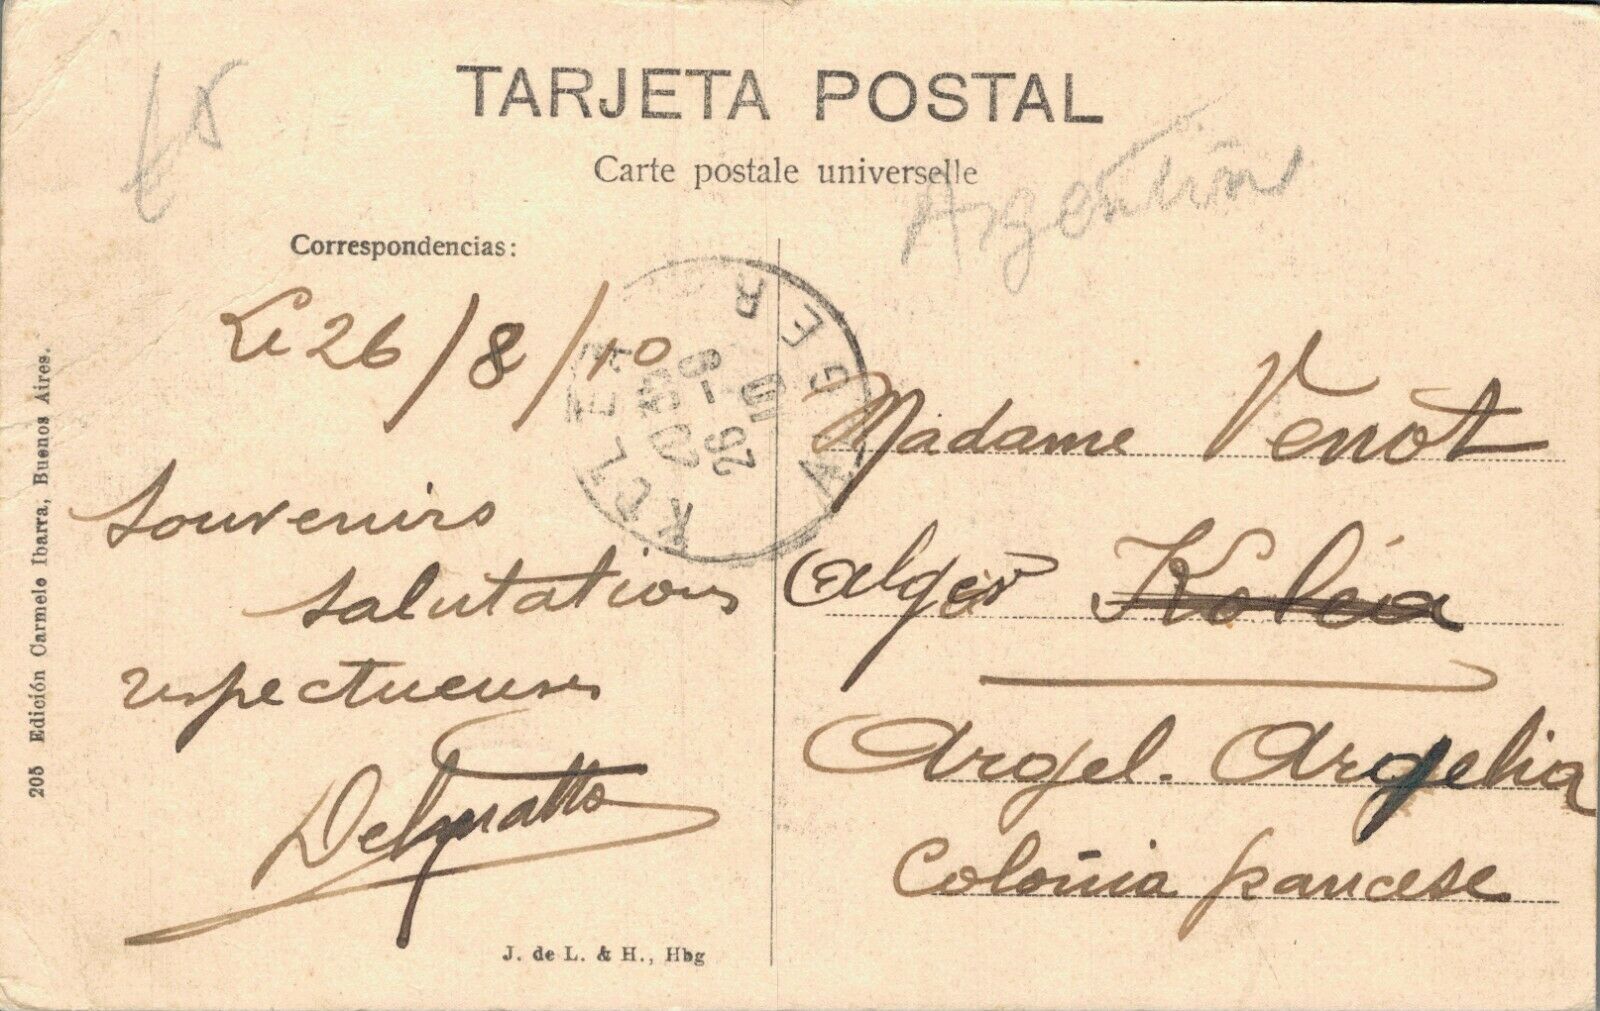 TARJETA POSTAL
Carte postale universelle
Argentine
Correspondencias:
Le 26/8/10
Souvenirs
salutations
respectueuses
J. de L. & H., Hbg
205 Edición Carmelo Ibarra, Buenos Aires.
KOLEA
ALGER
26 -9 10
Madame Venot
Alger Koléa
Argel. Argelia
Coloñia francese